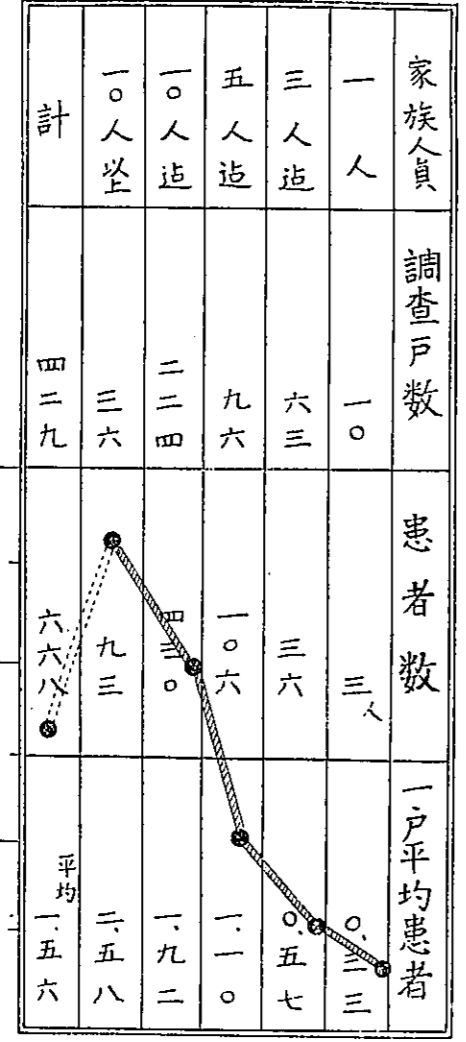 家族人員 調査戸数 患者数 一戸平均患者
一人 一〇 三人 〇、三三
三人迠 六三 三六 〇、五七
五人迠 九六 一〇六 一、一〇
一〇人迠 二二四 四三〇 一、九二
一〇人以上 三六 九三 二、五八
計 四二九 六六八 平均 一、五六